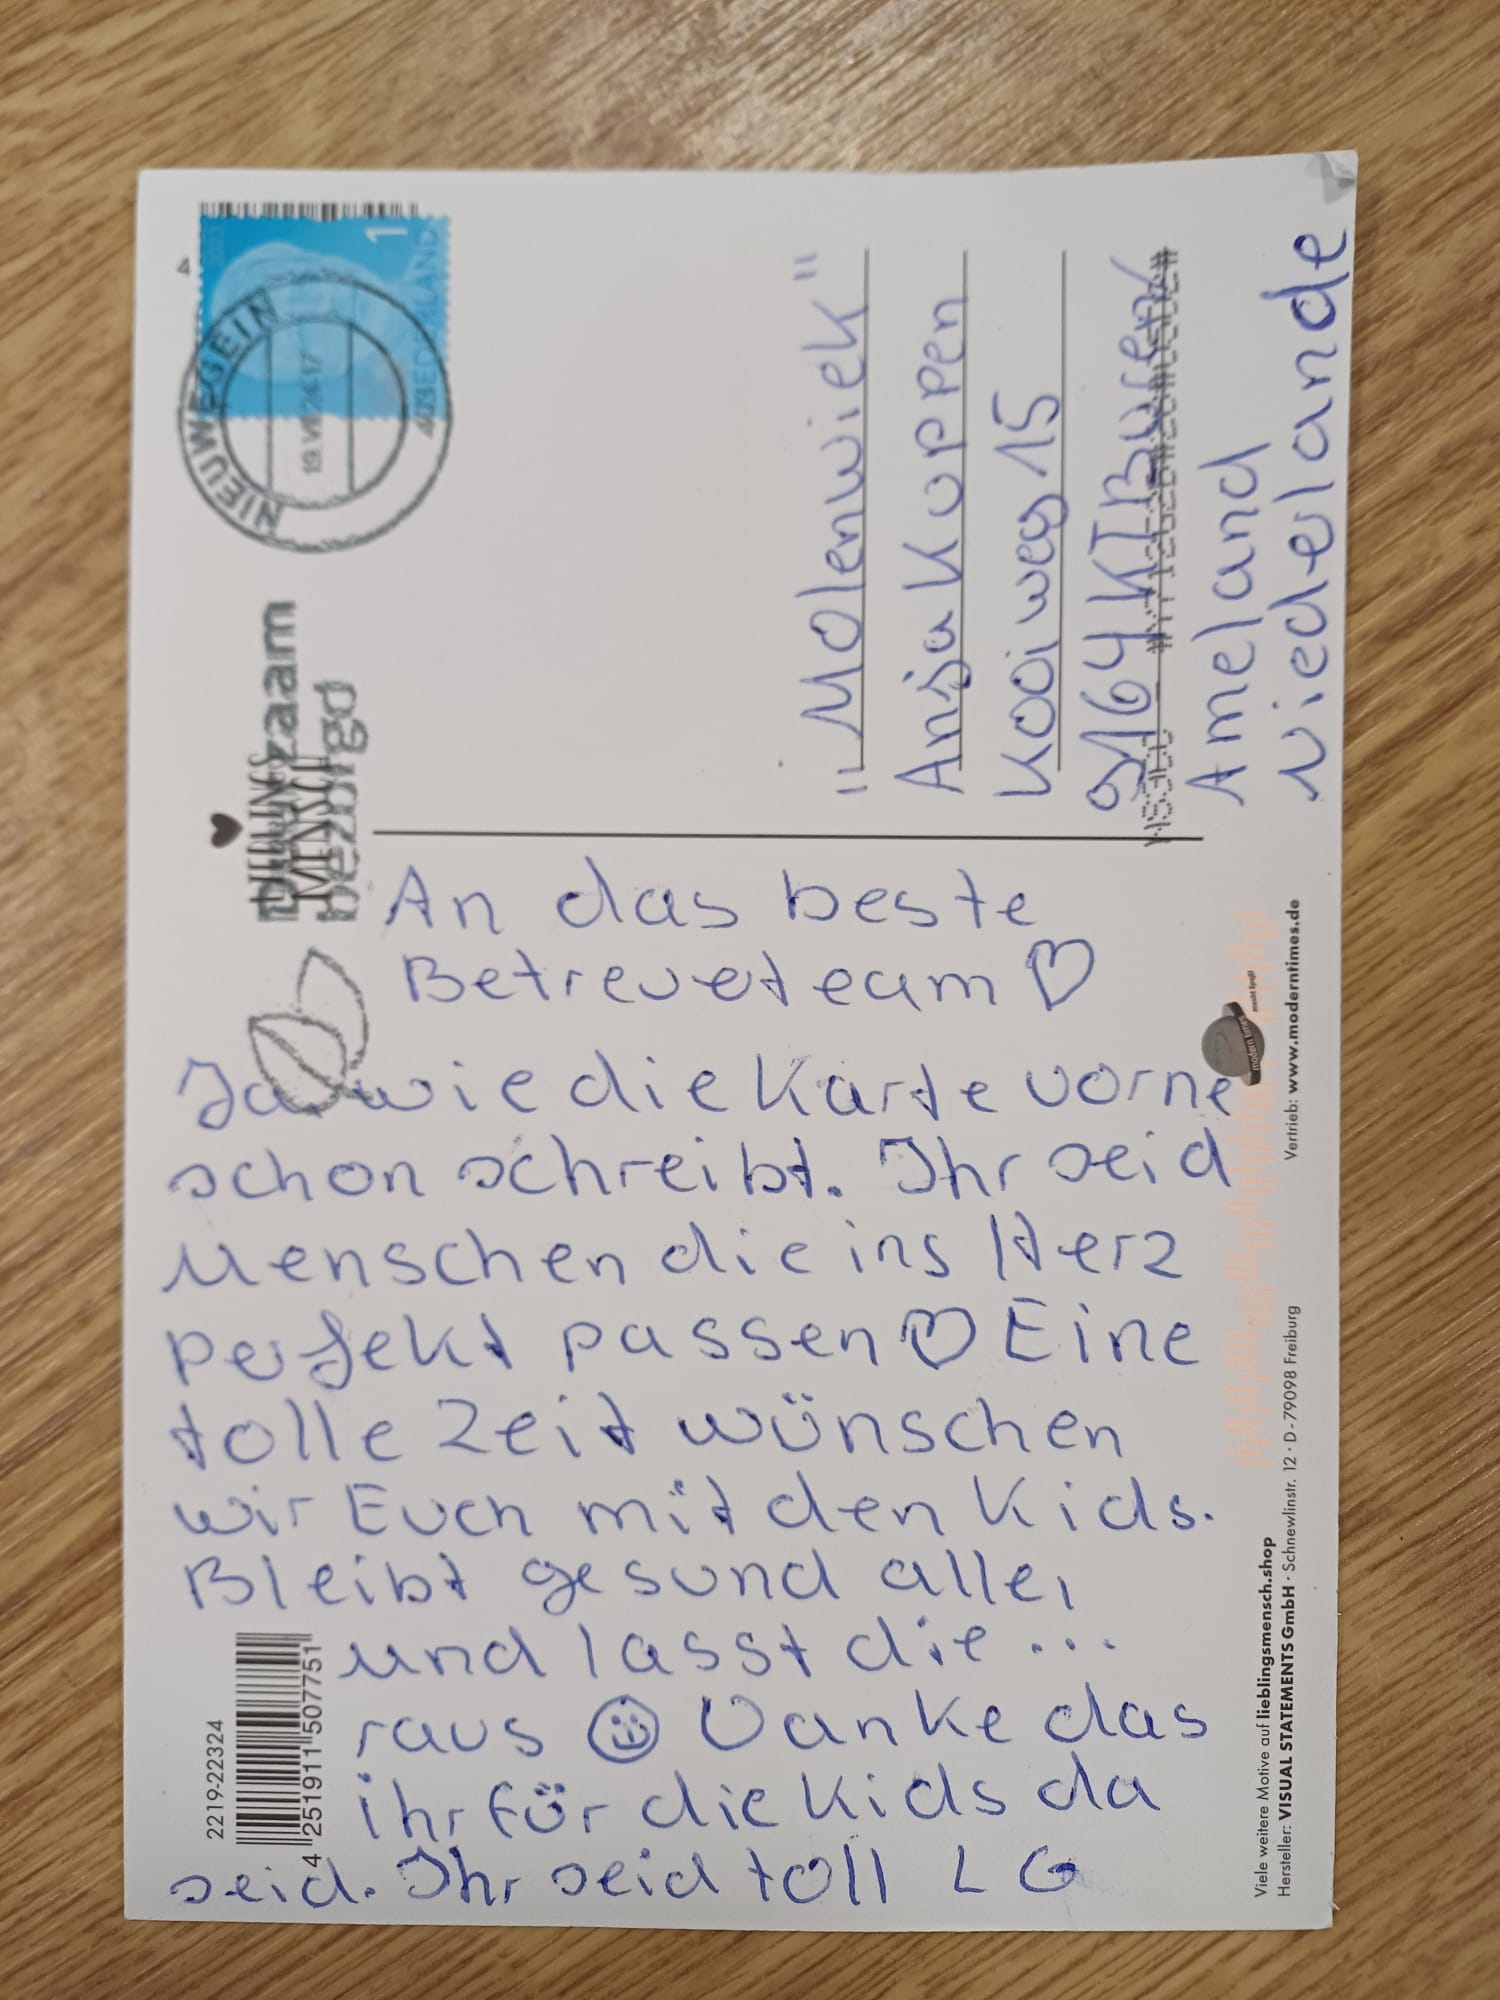 An das beste
Betreueteam ♡
Ja wie die Karte vorne
schon schreibt. Ihr seid
Menschen die ins Herz
perfekt passen ♡ Eine
tolle Zeit wünschen
wir Euch mit den Kids.
Bleibt gesund alle,
und lasst die ...
raus ☺ Danke das
ihr für die Kids da
seid. Ihr seid toll LG
"Molenwiek"
Anja Kuppen
Kooiweg 15
9164 KT Buren/
Ameland
Niederlande
NIEUWEGEIN
19.VII.24-17
4
2023
1
NEDERLAND
LIEBLINGS
MENSCH
Duurzaam
bezorgd
2219-22324
4 251911 507751
Viele weitere Motive auf lieblingsmensch.shop
Hersteller: VISUAL STATEMENTS GmbH · Schnewlinstr. 12 · D - 79098 Freiburg
Vertrieb: www.moderntimes.de
modern times
macht Spaß!